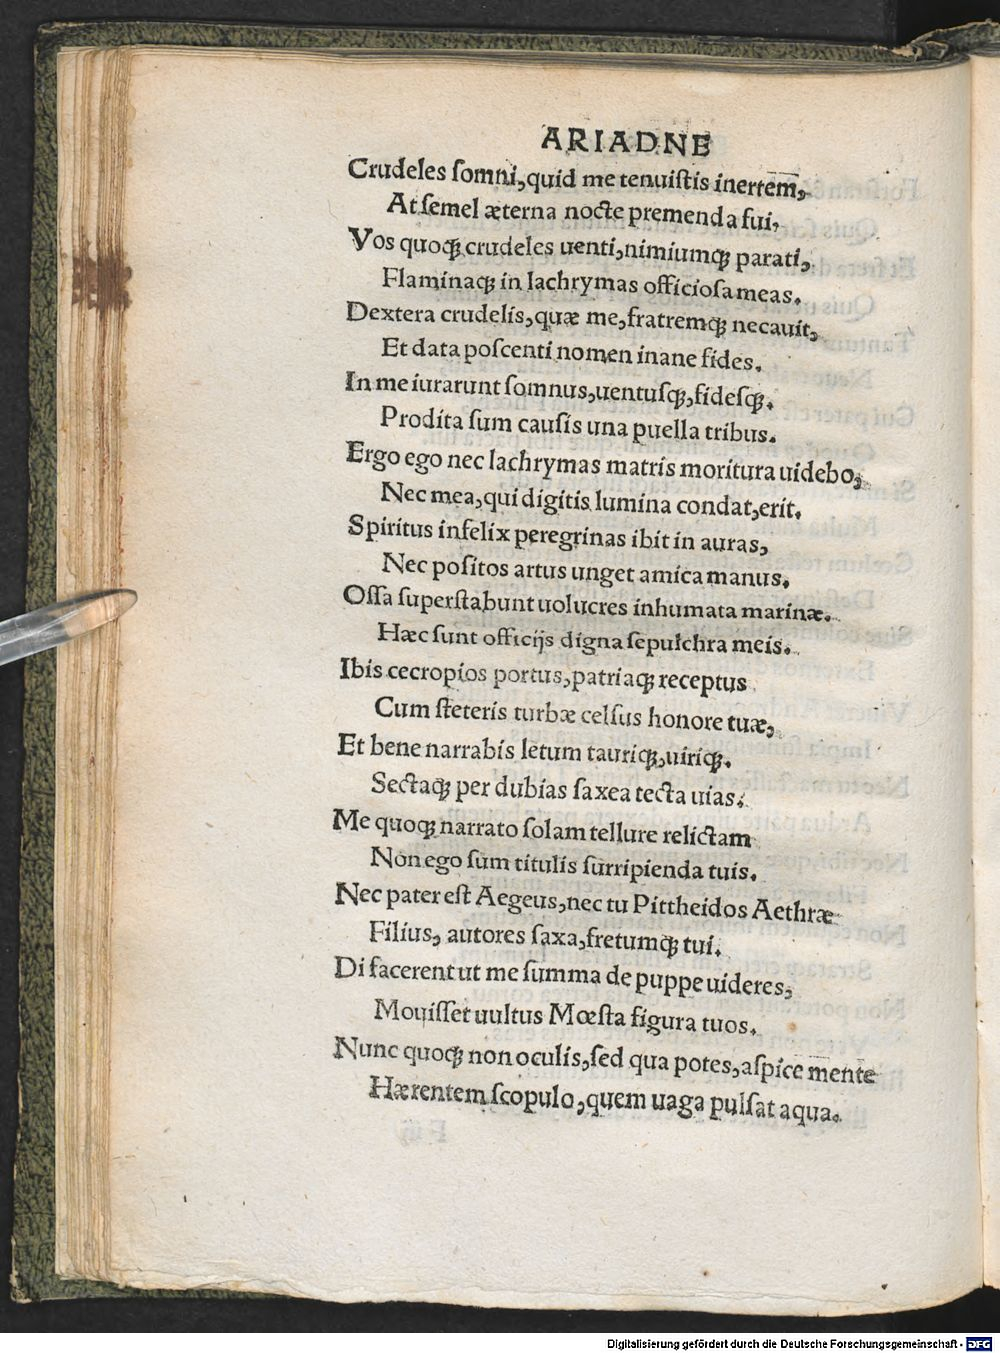 ARIADNE
Crudeles ſomni, quid me tenuiſtis inertem,
At ſemel æterna nocte premenda fui.
Vos quoqꝫ crudeles uenti, nimiumqꝫ parati,
Flaminaqꝫ in lachrymas officioſa meas.
Dextera crudelis, quæ me, fratremqꝫ necauit,
Et data poſcenti nomen inane fides.
In me iurarunt ſomnus, uentuſqꝫ, fideſqꝫ.
Prodita ſum cauſis una puella tribus.
Ergo ego nec lachrymas matris moritura uidebo,
Nec mea, qui digitis lumina condat, erit.
Spiritus infelix peregrinas ibit in auras,
Nec poſitos artus unget amica manus.
Oſſa ſuperſtabunt uolucres inhumata marinæ.
Hæc ſunt officijs digna ſepulchra meis.
Ibis cecropios portus, patriaqꝫ receptus
Cum ſteteris turbæ celſus honore tuæ,
Et bene narrabis letum tauriqꝫ, uiriqꝫ.
Sectaqꝫ per dubias ſaxea tecta uias.
Me quoqꝫ narrato ſolam tellure relictam
Non ego ſum titulis ſurripienda tuis.
Nec pater eſt Aegeus, nec tu Pittheidos Aethræ
Filius, autores ſaxa, fretumqꝫ tui.
Di facerent ut me ſumma de puppe uideres,
Mouiſſet uultus Mœſta figura tuos.
Nunc quoqꝫ non oculis, ſed qua potes, aſpice mente
Hærentem ſcopulo, quem uaga pulſat aqua.
Digitalisierung gefördert durch die Deutsche Forschungsgemeinschaft - DFG